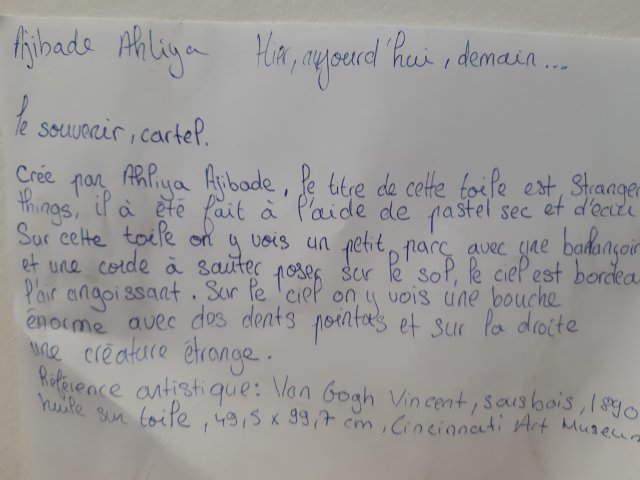 Ajibade Ahliya Hier, aujourd'hui, demain...
le souvenir, cartel.
Crée par Ahliya Ajibade, le titre de cette toile est, Stranger
things, il à été fait à l'aide de pastel sec et d'écoli
Sur cette toile on y vois un petit parc avec une balançoir
et une corde à sauter poser sur le sol, le ciel est bordea
l'air angoissant. Sur le ciel on y vois une bouche
énorme avec des dents pointas et sur la droite
une créature étrange.
Référence artistique: Van Gogh Vincent, sous bois, 1890
huile sur toile, 49,5 x 99,7 cm, Cincinnati Art Museum